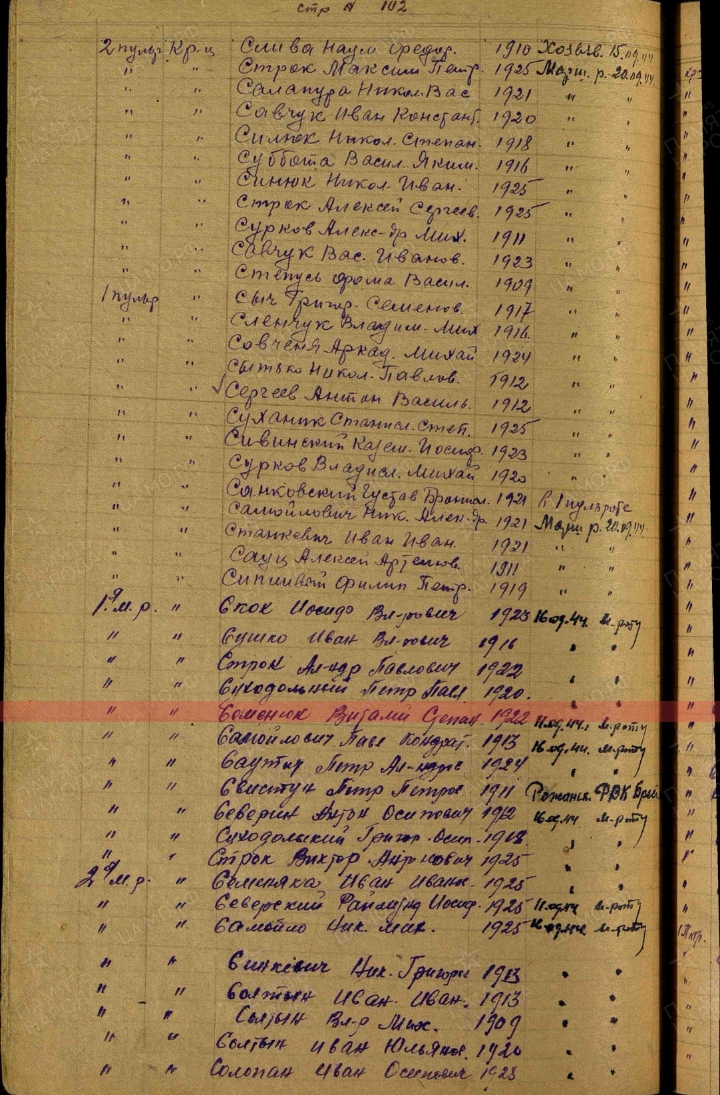 стр № 102
2 пульр Кр-ц Слива Наум Федор. 1910 Хозвзв. 15.09.44
" " Строк Максим Петр. 1925 Марш. р. 20.09.44
" " Салапура Никол. Вас 1921 " "
" " Савчук Иван Констант. 1920 " "
" " Силюк Никол. Степан. 1918 " "
" " Суббота Васил. Яким. 1916 " "
" " Синюк Никол. Иван. 1925 " "
" " Строк Алексей Сергеев. 1925 " "
" " Сурков Алекс-др Мих. 1911 " "
" " Савчук Вас. Иванов. 1923 " "
" " Степусь Фома Васил. 1909 " "
1 пульр " Сыч Григор. Семенов. 1917 " "
" " Сленчук Владим. Мих 1916 " "
" " Совченя Аркад. Михай 1924 " "
" " Сытько Никол. Павлов. 1912 " "
" " Сергеев Антон Василь. 1912 " "
" " Суханик Станисл. Степ. 1925 " "
" " Сивинский Казем. Иосиф. 1923 " "
" " Сурков Владисл. Михай 1920 " "
" " Санковский Густав Бронисл. 1921 в 1 пульроте
" " Самойлович Ник. Алек-др. 1921 Марш р. 20.09.44
" " Станкевич Иван Иван. 1921 " "
" " Сауц Алексей Артемов. 1911 " "
" " Сипливый Филип Петр. 1919 " "
1я м.р. " Скок Иосиф Вл-рович 1923 16.09.44 м-роту
" " Сушко Иван Вл-рович 1916 " "
" " Строк Ал-ндр Павлович 1922 " "
" " Суходольный Петр Павл 1920. " "
" " Семенюк Виталий Степан 1922 11.09.44. м-роту
" " Самойлович Павл Кондрат. 1913 16.09.44. м-роту
" " Саутич Петр Ал-ндров 1924 " "
" " Свистун Петр Петров 1911 Ружанск. РВК Брес.
" " Северин Антон Осипович 1912 16.09.44 м-роту
" " Суходольский Григор. Осип. 1918 " "
" " Строк Виктор Андреович 1925 " "
2я м.р. " Семеняка Иван Иванов. 1925 " "
" " Северский Раймунд Иосиф. 1925 11.09.44 м-роту
" " Самойло Ник. Мих. 1925 16.09.44 м-роту
" " Синкевич Ник. Григорь 1913 " "
" " Солтын Иван. Иван. 1913 " "
" " Солтын Вл-р Мих. 1909 " "
" " Солтын Иван Юльянов. 1920 " "
" " Солопан Иван Осипович 1925 " "